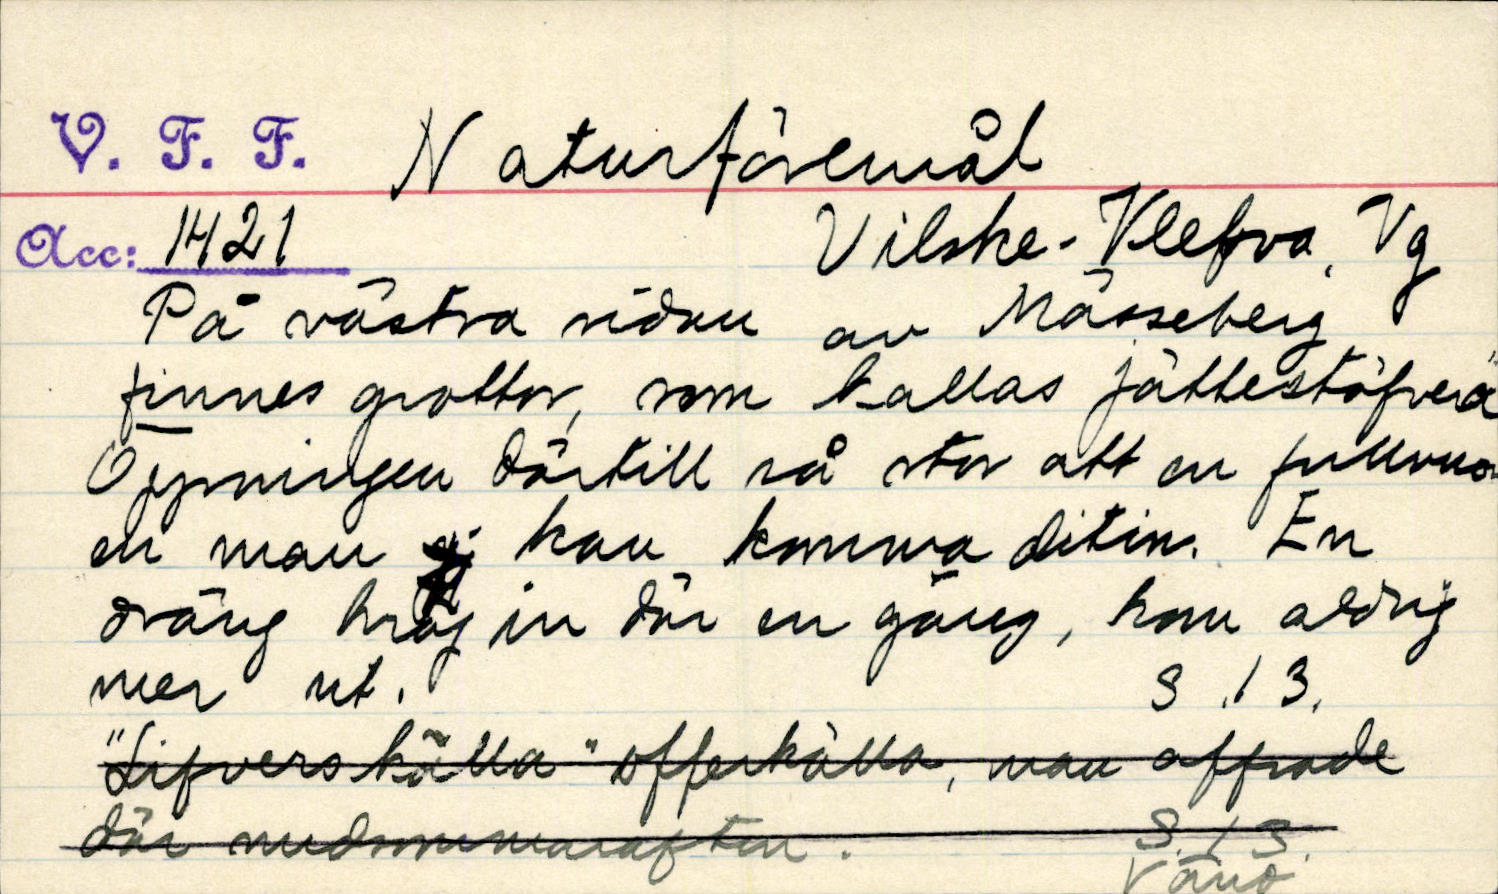 V. F. F. Naturföremål
Acc: 1421 Vilske-Klefva, Vg
På västra sidan av Mösseberg
finnes grottor, som kallas jättestöfverä
Öppningen därtill så stor att en fullvux
en man kan komma ditin. En
dräng kröj in där en gång, kom aldrig
mer ut. S. 13.
"Lifvers källa" offerkälla, man offrade
där midsommarafton. S. 13.